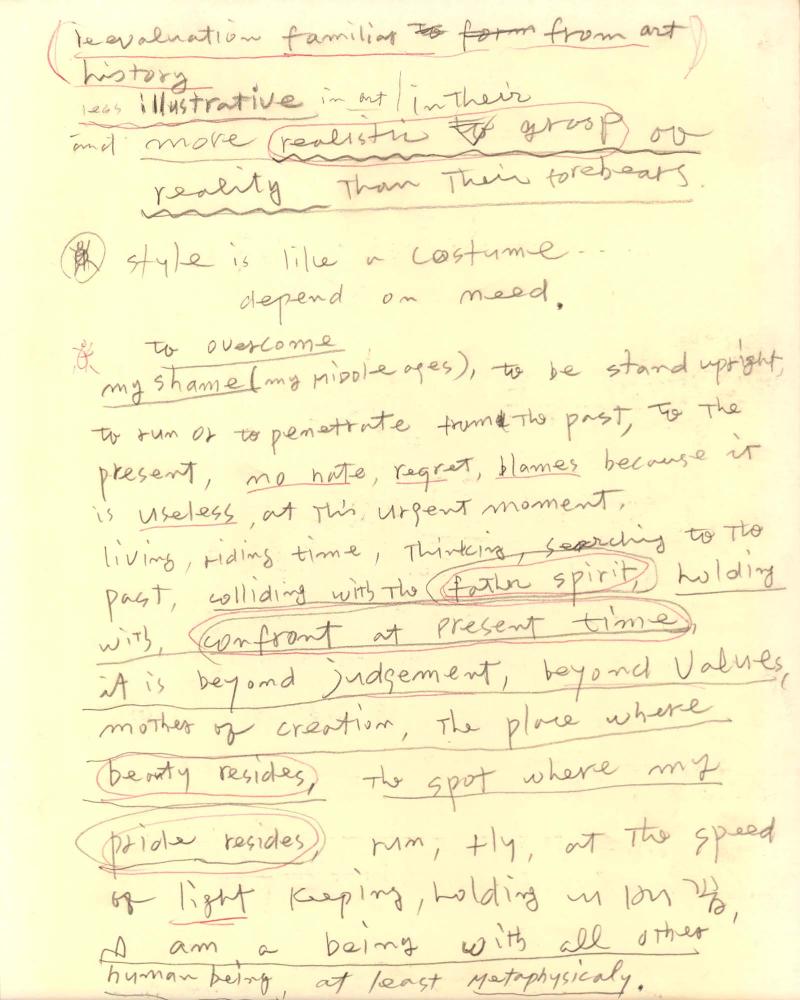 (reevaluation familiar to form from art)
history
less illustrative in art / in their
and more realistic to grasp ov
reality Than Their forebears.
style is like a costume...
depend on need.
to overcome
my shame (my Middle ages), to be stand upright,
to run or to penetrate from the past, to the
present, no hate, regret, blames because it
is useless, at This urgent moment,
living, riding time, Thinking, searching to the
past, colliding with the father spirit, holding
with, confront at present time,
it is beyond judgement, beyond Values,
mother of creation, The place where
beauty resides, The spot where my
pride resides, run, fly, at The speed
of light keeping, holding
I am a being with all other
human being, at least metaphysicaly.